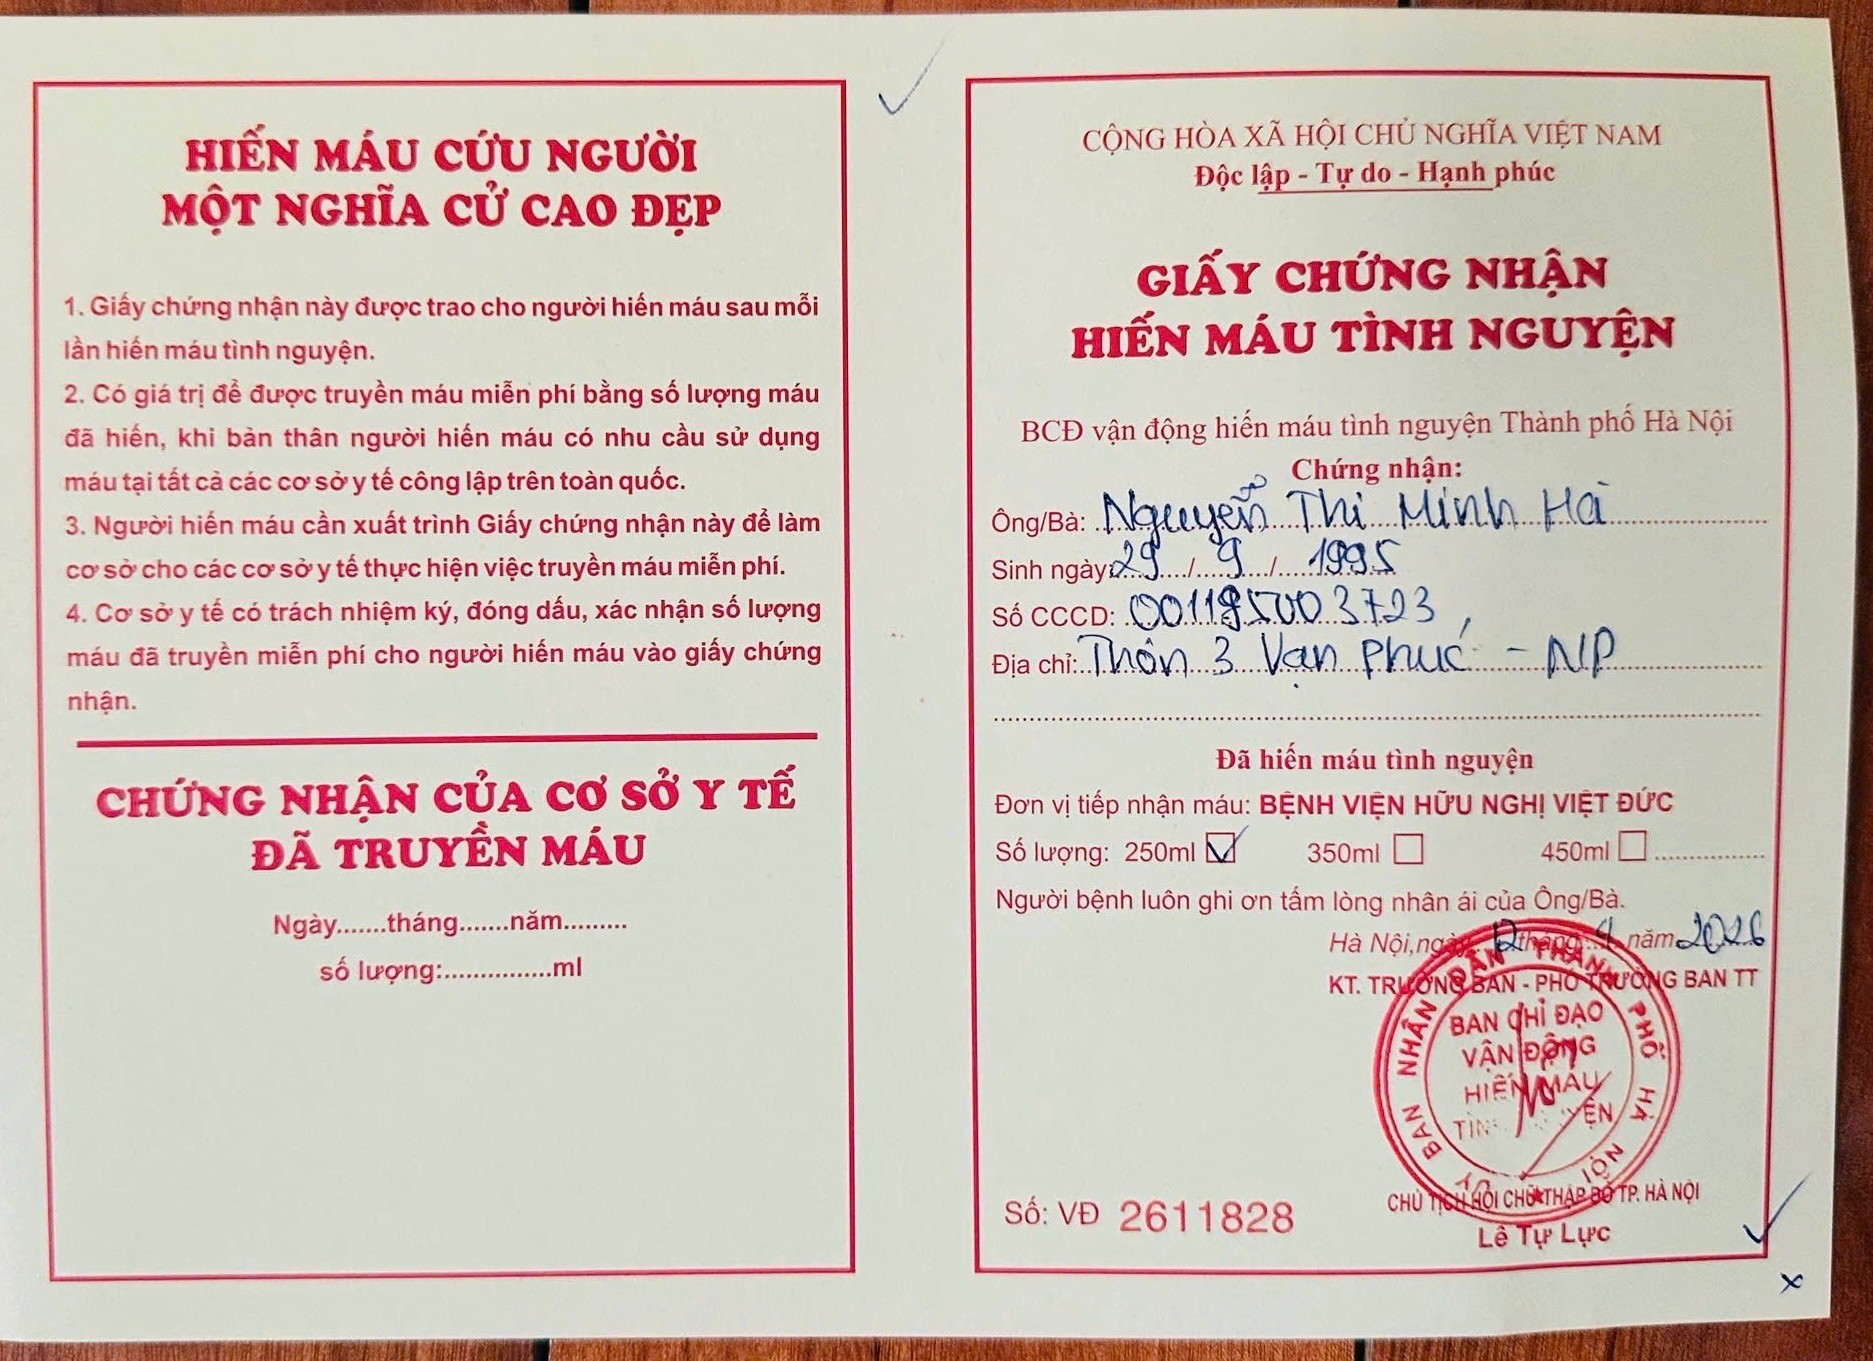 HIẾN MÁU CỨU NGƯỜI
MỘT NGHĨA CỬ CAO ĐẸP
1. Giấy chứng nhận này được trao cho người hiến máu sau mỗi
lần hiến máu tình nguyện.
2. Có giá trị để được truyền máu miễn phí bằng số lượng máu
đã hiến, khi bản thân người hiến máu có nhu cầu sử dụng
máu tại tất cả các cơ sở y tế công lập trên toàn quốc.
3. Người hiến máu cần xuất trình Giấy chứng nhận này để làm
cơ sở cho các cơ sở y tế thực hiện việc truyền máu miễn phí.
4. Cơ sở y tế có trách nhiệm ký, đóng dấu, xác nhận số lượng
máu đã truyền miễn phí cho người hiến máu vào giấy chứng
nhận.
CHỨNG NHẬN CỦA CƠ SỞ Y TẾ
ĐÃ TRUYỀN MÁU
Ngày.......tháng.......năm.........
số lượng:...............ml
CỘNG HÒA XÃ HỘI CHỦ NGHĨA VIỆT NAM
Độc lập - Tự do - Hạnh phúc
GIẤY CHỨNG NHẬN
HIẾN MÁU TÌNH NGUYỆN
BCĐ vận động hiến máu tình nguyện Thành phố Hà Nội
Chứng nhận:
Ông/Bà: Nguyễn Thi Minh Hà
Sinh ngày: 29 / 9 / 1995
Số CCCD: 001195003723
Địa chỉ: Thôn 3 Vạn Phúc - NP
Đã hiến máu tình nguyện
Đơn vị tiếp nhận máu: BỆNH VIỆN HỮU NGHỊ VIỆT ĐỨC
Số lượng: 250ml 350ml 450ml
Người bệnh luôn ghi ơn tấm lòng nhân ái của Ông/Bà.
Hà Nội, ngày 12 tháng 9 năm 2026
KT. TRƯỞNG BAN - PHÓ TRƯỞNG BAN TT
ỦY BAN NHÂN DÂN THÀNH PHỐ HÀ NỘI
BAN CHỈ ĐẠO
VẬN ĐỘNG
HIẾN MÁU
TÌNH NGUYỆN
CHỦ TỊCH HỘI CHỮ THẬP ĐỎ TP. HÀ NỘI
Lê Tự Lực
Số: VĐ 2611828
x